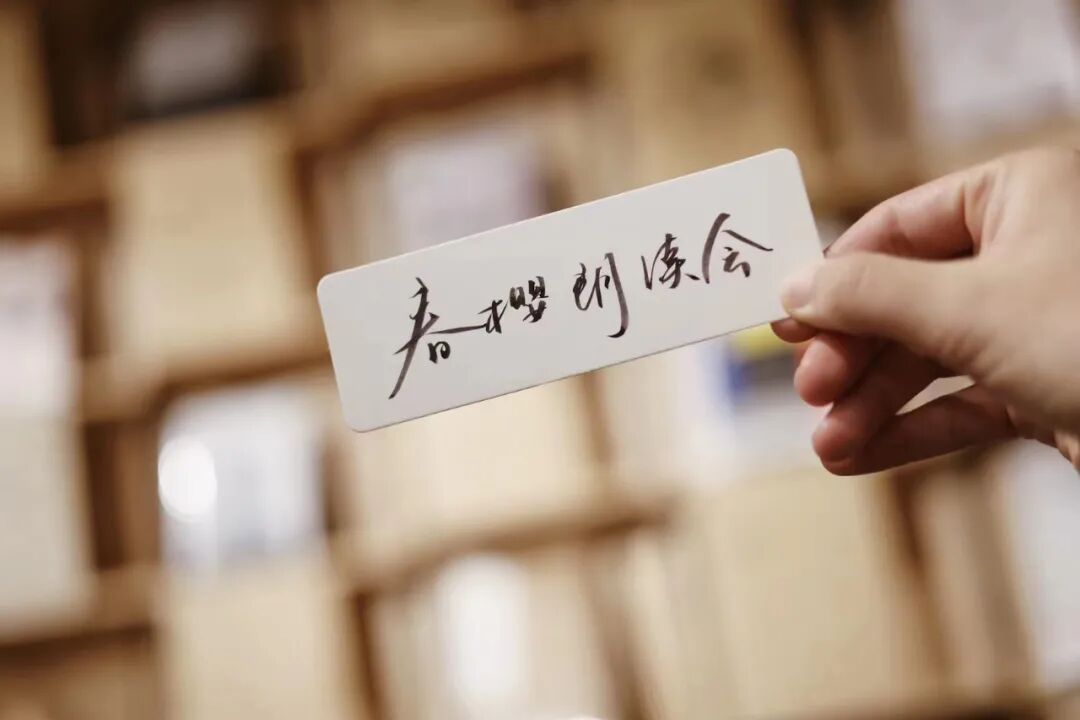 春樱朗读会